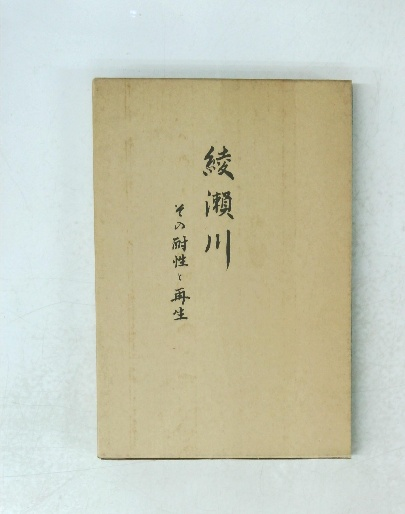 綾瀬川
その耐性と再生